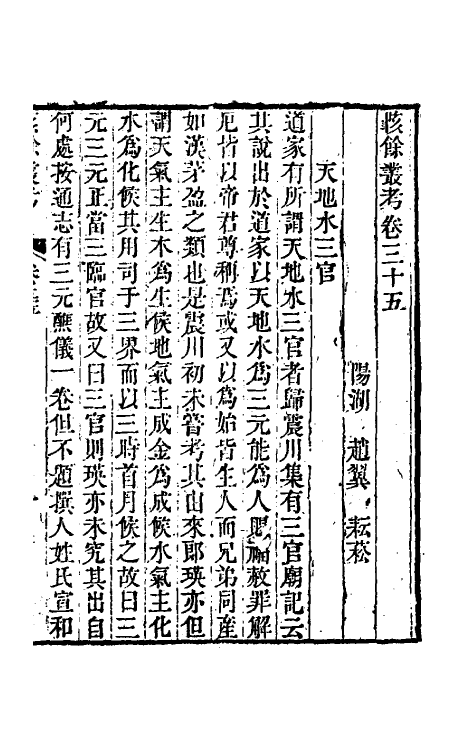 陔餘叢考卷三十五
陽湖 趙翼 耘菘
天地水三官
道家有所謂天地水三官者歸震川集有三官廟記云
其說出於道家以天地水爲三元能爲人賜福赦罪解
厄皆以帝君尊稱焉或又以爲始皆生人而兄弟同産
如漢茅盈之類也是震川初未嘗考其由來郞瑛亦但
謂天氣主生木爲生候地氣主成金爲成候水氣主化
水爲化候其用司于三界而以三時首月候之故曰三
元三元正當三臨官故又曰三官則瑛亦未究其出自
何處按通志有三元醮儀一卷但不題撰人姓氏宣和